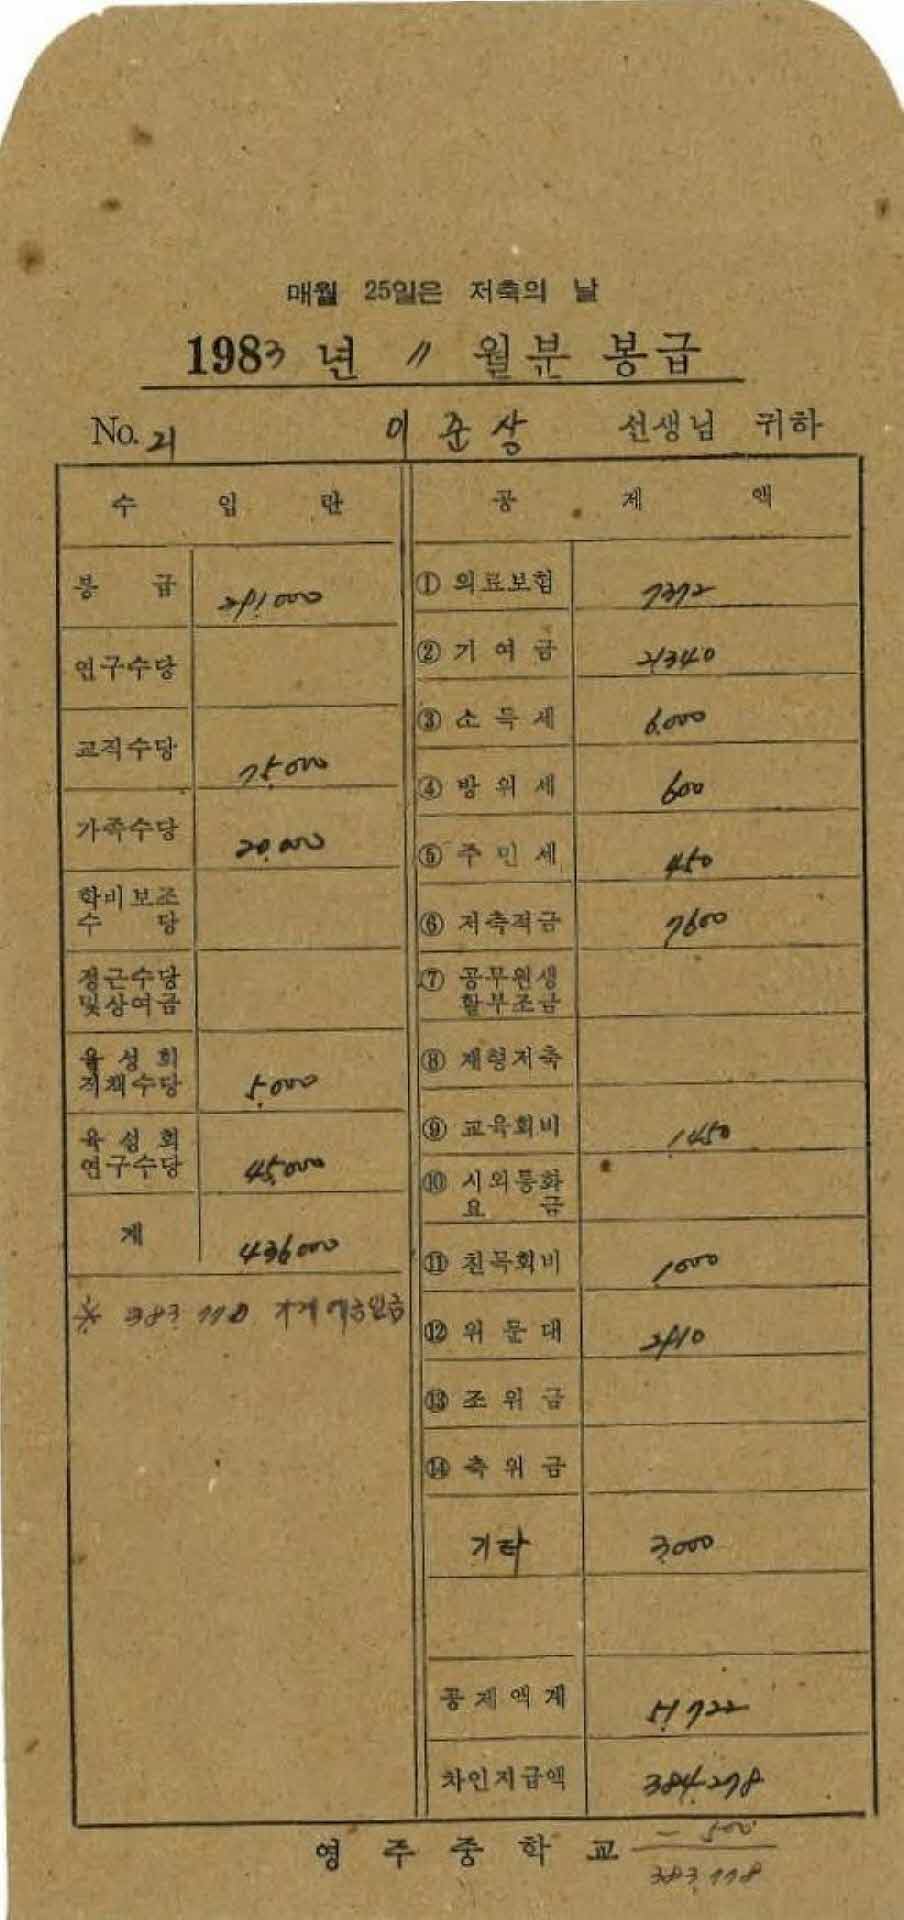 매월 25일은 저축의 날
1983 년 11 월분 봉급
No. 21 이준상 선생님 귀하
수 입 란
봉 급 291,000
연구수당
교직수당 75,000
가족수당 20,000
학비보조
수 당
정근수당
및상여금
육성회
직책수당 5,000
육성회
연구수당 45,000
계 436,000
※ 383,770 가계예금입금
공 제 액
① 의료보험 7372
② 기여금 21,340
③ 소득세 6,000
④ 방위세 600
⑤ 주민세 450
⑥ 저축적금 7600
⑦ 공무원생
활부조금
⑧ 재형저축
⑨ 교육회비 1450
⑩ 시외통화
요 금
⑪ 친목회비 1,000
⑫ 위문대 2910
⑬ 조위금
⑭ 축위금
기타 3,000
공제액계 51,722
차인지급액 384,278
영주중학교
- 500
383,778